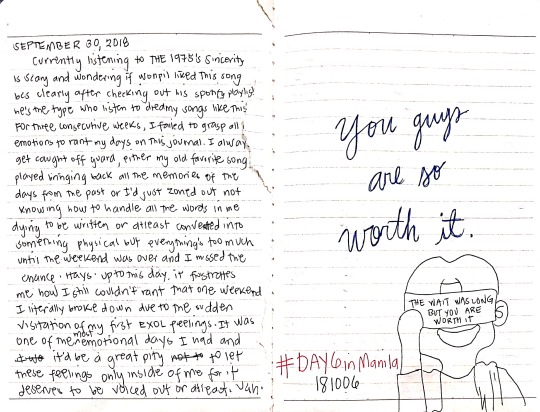 SEPTEMBER 30, 2018
Currently listening to THE 1975's Sincerity
is scary and wondering if wonpil liked this song
bcs clearly after checking out his spotify playlist
he's the type who listen to dreamy songs like this
For three consecutive weeks, I failed to grasp all
emotions to rant my days on this journal. I always
get caught off guard, either my old favorite song
played bringing back all the memories of the
days from the past or I'd just zoned out not
knowing how to handle all the words in me
dying to be written or atleast converted into
something physical but everything's too much
until the weekend was over and I missed the
chance. Hays. Up to this day, it fustrates
me how I still couldn't rant that one weekend
I literally broke down due to the sudden
visitation of my first EXOL feelings. It was
one of the most emotional days I had and
it'd be a great pity not to to let
these feelings only inside of me for it
deserves to be voiced out or atleast. Yah.
You guys
are so
worth it.
THE WAIT WAS LONG
BUT YOU ARE
WORTH IT
#DAY6inManila
181006